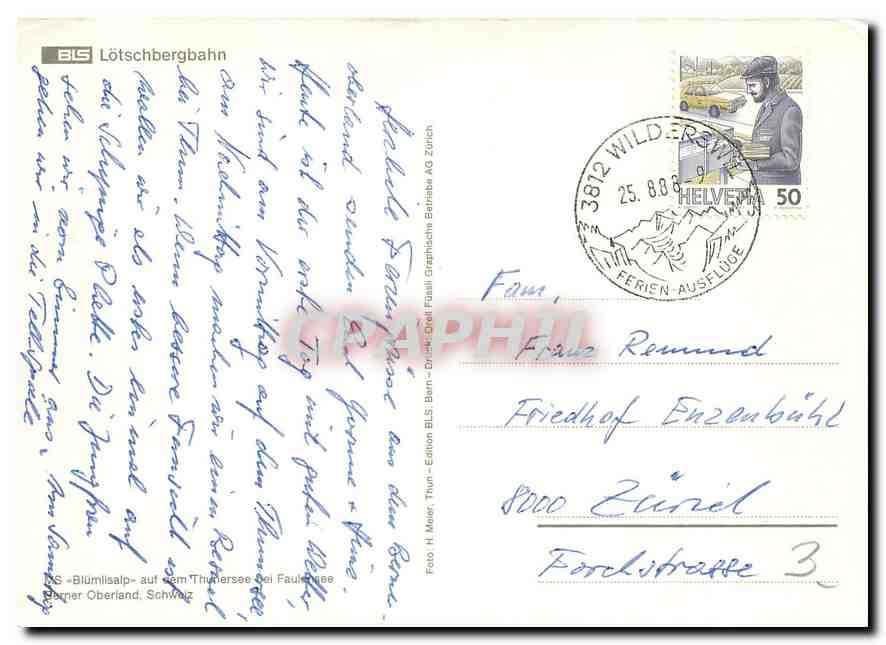 BLS Lötschbergbahn
HELVETIA 50
3812 WILDERSWIL
25. 8.88 - 9
FERIEN-AUSFLÜGE
Herzliche Feriengrüsse aus dem Berner-
oberland senden Yvonne + Hans.
Heute ist der erste Tag mit gutem Wetter,
wir sind am Vormittag auf dem Thunersee,
am Nachmittag machen wir einen
bei Thun. Wenn bessere Fernsicht ist
wollen wir als erstes einmal auf
die Schynige Platte. Die Jungfrau
sehen wir vom Zimmer aus. Am Samstag
gehen wir in die Tellspiele
Fam.
Franz Remund
Friedhof Enzenbühl
8000 Zürich
Forchstrasse 3
Foto: H. Meier, Thun – Edition BLS, Bern – Druck: Orell Füssli Graphische Betriebe AG Zürich
MS «Blümlisalp» auf dem Thunersee bei Faulensee
Berner Oberland, Schweiz
CPAPHIL